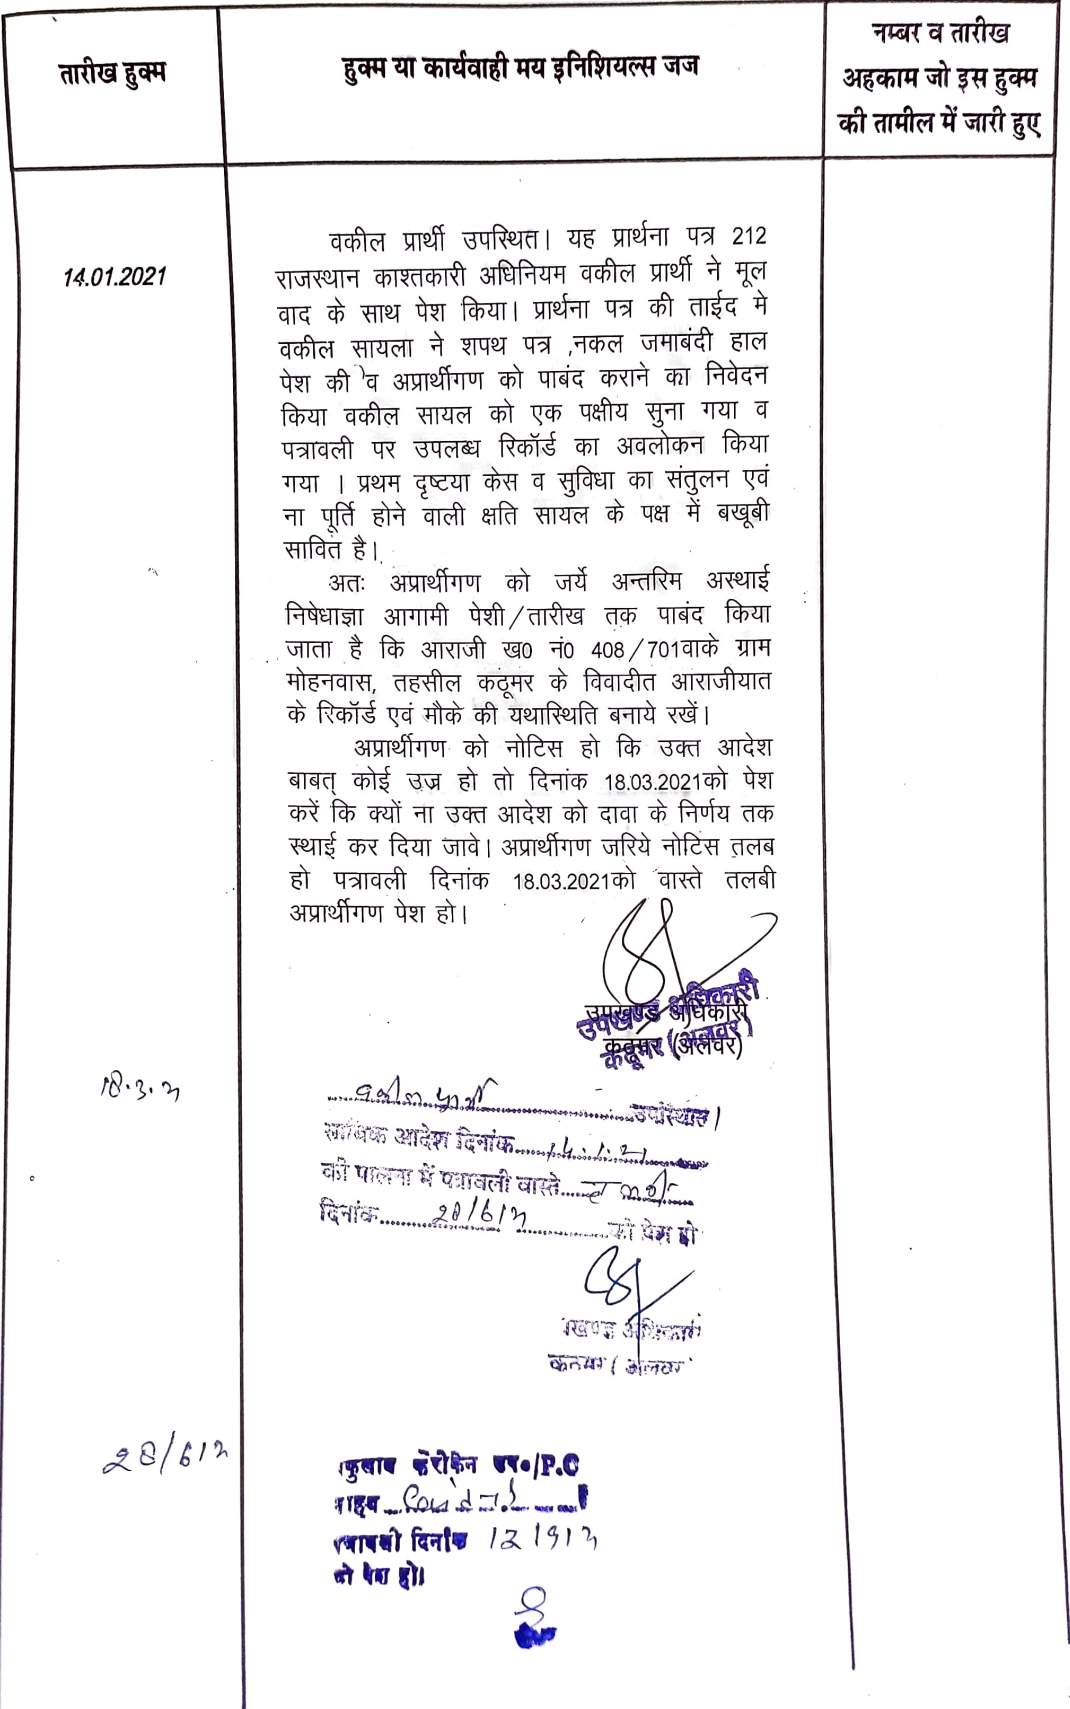 तारीख हुक्म
हुक्म या कार्यवाही मय इनिशियल्स जज
नम्बर व तारीख
अहकाम जो इस हुक्म
की तामील में जारी हुए
14.01.2021
वकील प्रार्थी उपस्थित। यह प्रार्थना पत्र 212
राजस्थान काश्तकारी अधिनियम वकील प्रार्थी ने मूल
वाद के साथ पेश किया। प्रार्थना पत्र की ताईद मे
वकील सायला ने शपथ पत्र ,नकल जमाबंदी हाल
पेश की व अप्रार्थीगण को पाबंद कराने का निवेदन
किया वकील सायल को एक पक्षीय सुना गया व
पत्रावली पर उपलब्ध रिकॉर्ड का अवलोकन किया
गया । प्रथम दृष्टया केस व सुविधा का संतुलन एवं
ना पूर्ति होने वाली क्षति सायल के पक्ष में बखूबी
सावित है।
अतः अप्रार्थीगण को जर्ये अन्तरिम अस्थाई
निषेधाज्ञा आगामी पेशी/तारीख तक पाबंद किया
जाता है कि आराजी ख0 नं0 408/701वाके ग्राम
मोहनवास, तहसील कठूमर के विवादीत आराजीयात
के रिकॉर्ड एवं मौके की यथास्थिति बनाये रखें।
अप्रार्थीगण को नोटिस हो कि उक्त आदेश
बाबत् कोई उज्र हो तो दिनांक 18.03.2021को पेश
करें कि क्यों ना उक्त आदेश को दावा के निर्णय तक
स्थाई कर दिया जावे। अप्रार्थीगण जरिये नोटिस तलब
हो पत्रावली दिनांक 18.03.2021को वास्ते तलबी
अप्रार्थीगण पेश हो।
उपखण्ड अधिकारी
कठूमर (अलवर)
उपखण्ड अधिकारी
कठूमर (अलवर)
18.3.21
वकील प्रार्थी उपस्थित।
साबिक आदेश दिनांक 14.1.21
की पालना में पत्रावली वास्ते तलबी
दिनांक 28/6/21 को पेश हो
खण्ड अधिकारी
कठूमर (अलवर
28/6/21
P.O
दिनांक 13/9/21
को पेश हो।